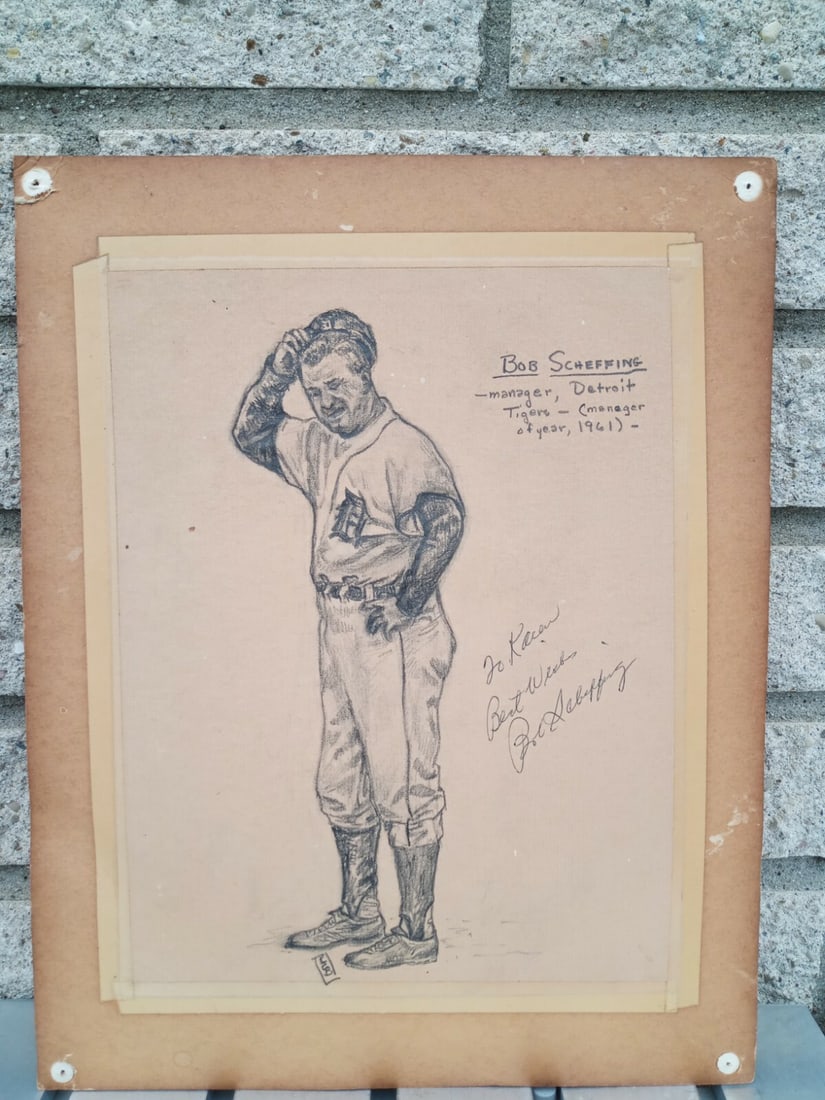 BOB SCHEFFING
—manager, Detroit
Tigers — (manager
of year, 1961) —
D
To Karen
Best Wishes
Bob Scheffing